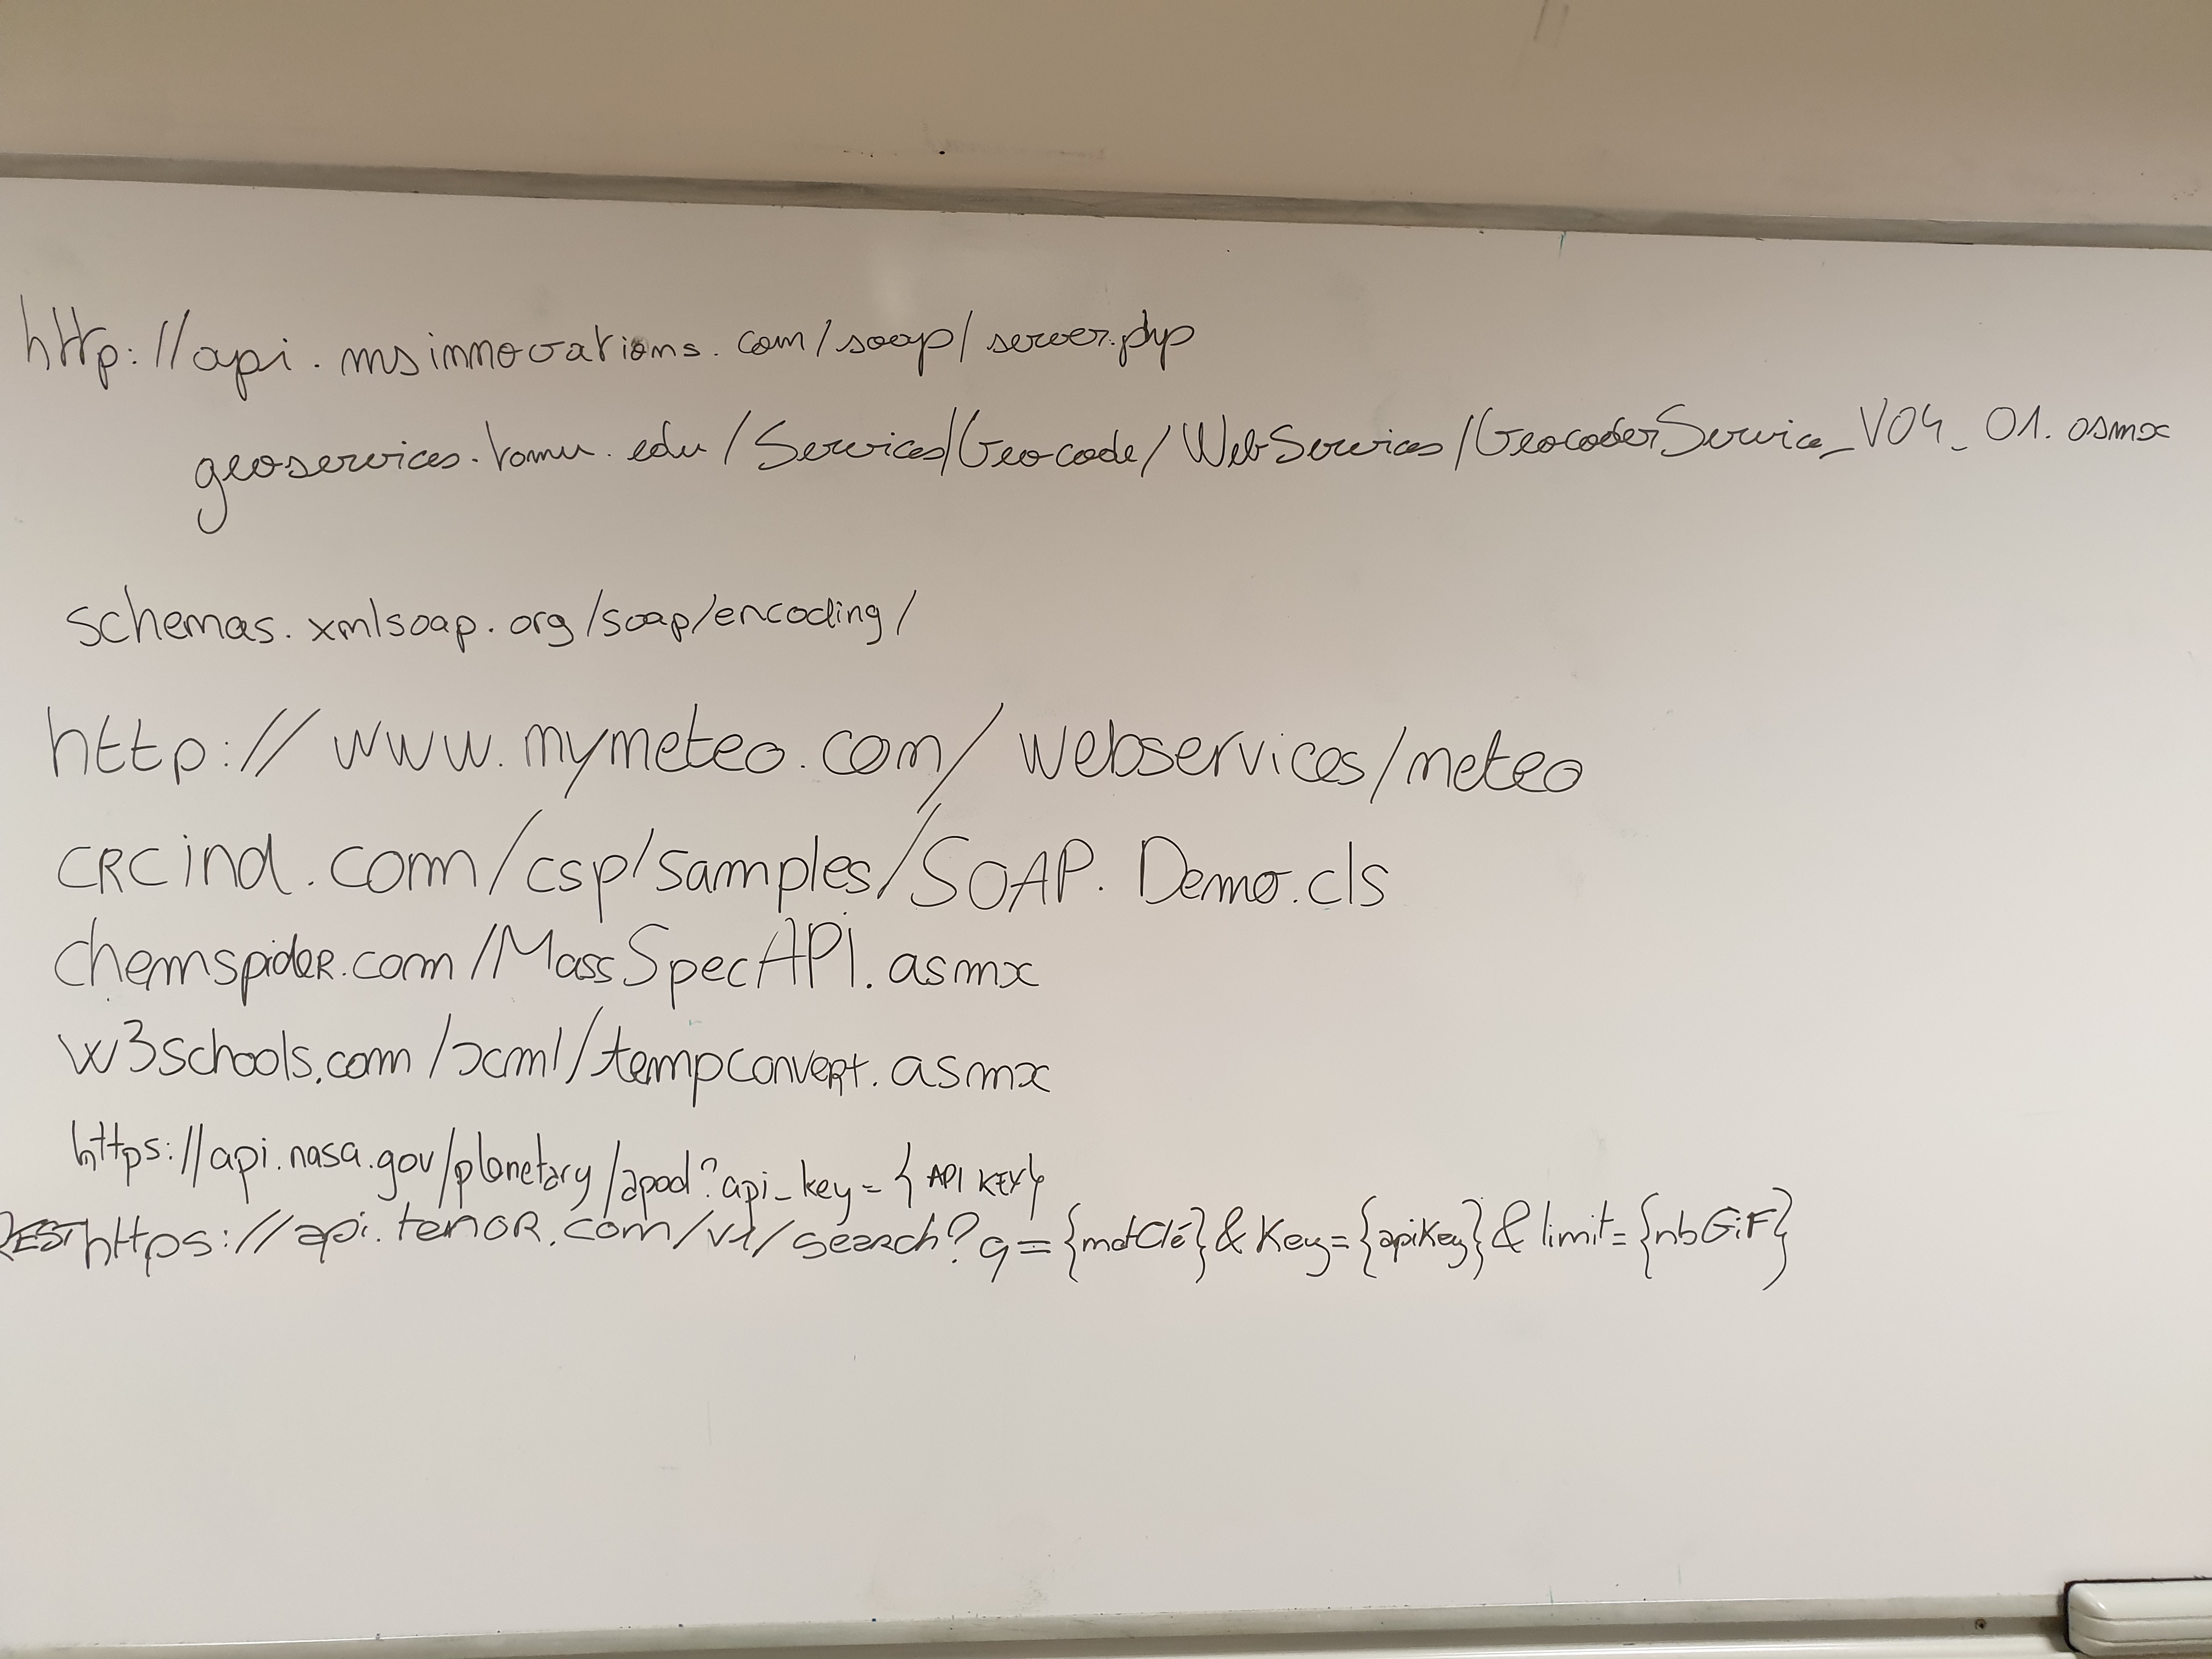 http://api.msinnovations.com/soap/server.php
geoservices.tamu.edu/Services/Geocode/WebServices/GeocoderService_V04_01.asmx
schemas.xmlsoap.org/soap/encoding/
http://www.mymeteo.com/webservices/meteo
CRCind.com/csp/samples/SOAP.Demo.cls
chemspideR.com/MassSpecAPI.asmx
w3schools.com/xml/tempconveRt.asmx
https://api.nasa.gov/planetary/apod?api_key={API KEY}
REST https://api.tenoR.com/v1/search?q={motClé}&Key={apiKey}&limit={nbGiF}